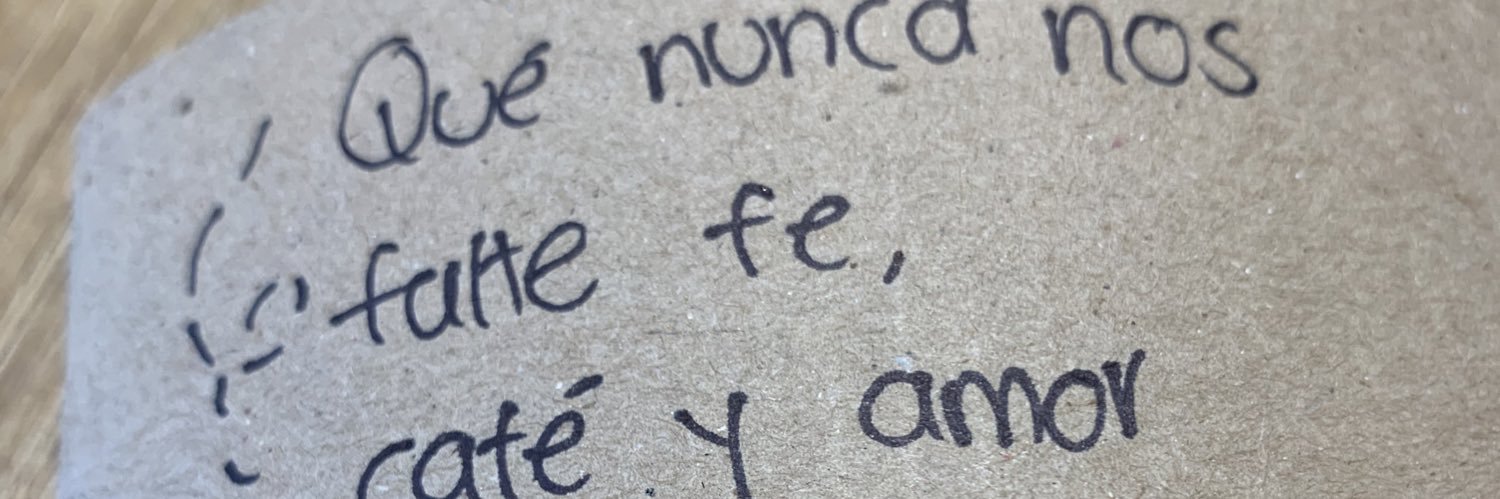 Qué nunca nos
falte fe,
café y amor